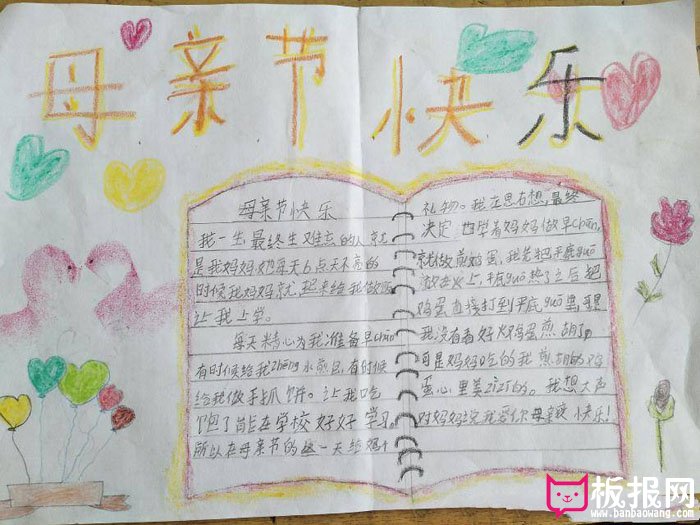 母亲节快乐
母亲节快乐
我一生最终生难忘的人就
是我妈妈,她每天6点天不亮的
时候我妈妈就起来给我做饭
让我上学。
每天精心为我准备早cān
有时候给我zhēng水煎旦,有时候
给我做手抓饼。让我吃
饱了能在学校好好学习。
所以在母亲节的这一天给妈个
礼物。我左思右想,最终
决定也学着妈妈做早cān,
就做煎鸡蛋,我先把平底guō
放在火上,平底guō热了之后把
鸡蛋直接打到平底guō里,可是
我没有看好,鸡蛋煎胡了
可是妈妈吃的我煎胡的鸡
蛋心里美zīzī的。我想大声
对妈妈说我爱你母亲节快乐!
板报网
www.banbaowang.com